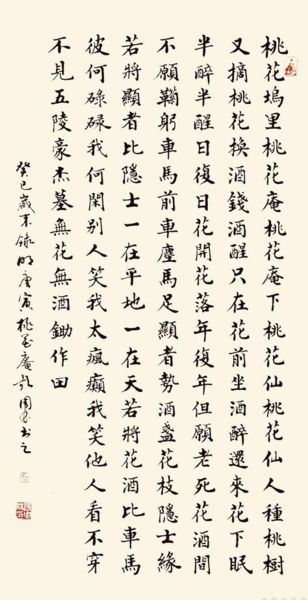 桃花塢里桃花庵桃花庵下桃花仙桃花仙人種桃樹
又摘桃花換酒錢酒醒只在花前坐酒醉還來花下眠
半醉半醒日復日花開花落年復年但願老死花酒間
不願鞠躬車馬前車塵馬足顯者勢酒盞花枝隱士緣
若將顯者比隱士一在平地一在天若將花酒比車馬
彼何碌碌我何閑別人笑我太瘋癲我笑他人看不穿
不見五陵豪杰墓無花無酒鋤作田
癸巳歲末錄明唐寅桃花庵歌周書之